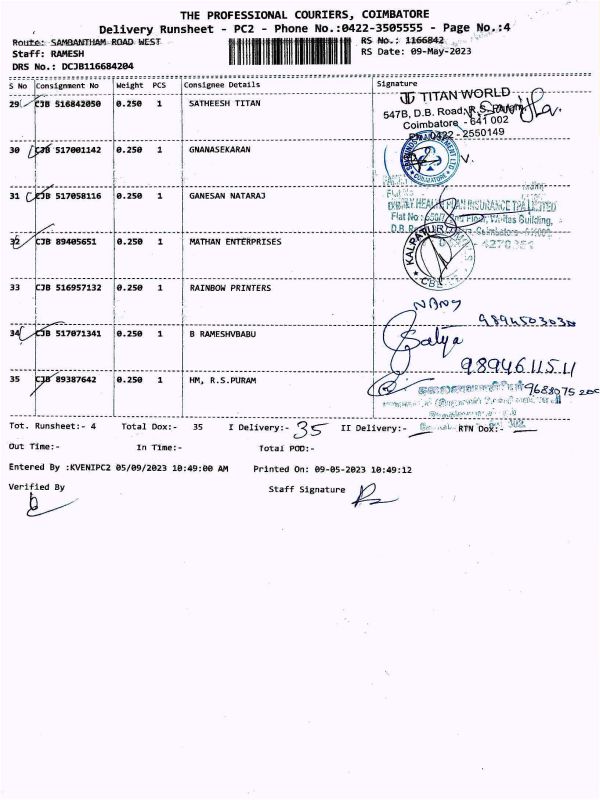 THE PROFESSIONAL COURIERS, COIMBATORE
Delivery Runsheet - PC2 - Phone No.:0422-3505555 - Page No.:4
Route: SAMBANTHAM ROAD WEST RS No.: 1166842
Staff: RAMESH RS Date: 09-May-2023
DRS No.: DCJB116684204
S No Consignment No Weight PCS Consignee Details Signature
29 CJB 516842050 0.250 1 SATHEESH TITAN
TITAN WORLD
547B, D.B. Road, R.S. Puram,
Coimbatore - 641 002
Ph: 0422 - 2550149
30 CJB 517001142 0.250 1 GNANASEKARAN
COIMBATORE
V.
31 CJB 517058116 0.250 1 GANESAN NATARAJ
HEALTH PLAN INSURANCE TPA LIMITED
Flat No : Floor, Building,
D.B. Coimbatore
32 CJB 89405651 0.250 1 MATHAN ENTERPRISES
CBE
33 CJB 516957132 0.250 1 RAINBOW PRINTERS
9894503030
34 CJB 517071341 0.250 1 B RAMESHVBABU
Satya
9894611511
35 CJB 89387642 0.250 1 HM, R.S.PURAM
Tot. Runsheet:- 4 Total Dox:- 35 I Delivery:- 35 II Delivery:- — RTN Dox:- —
Out Time:- In Time:- Total POD:-
Entered By :KVENIPC2 05/09/2023 10:49:00 AM Printed On: 09-05-2023 10:49:12
Verified By Staff Signature